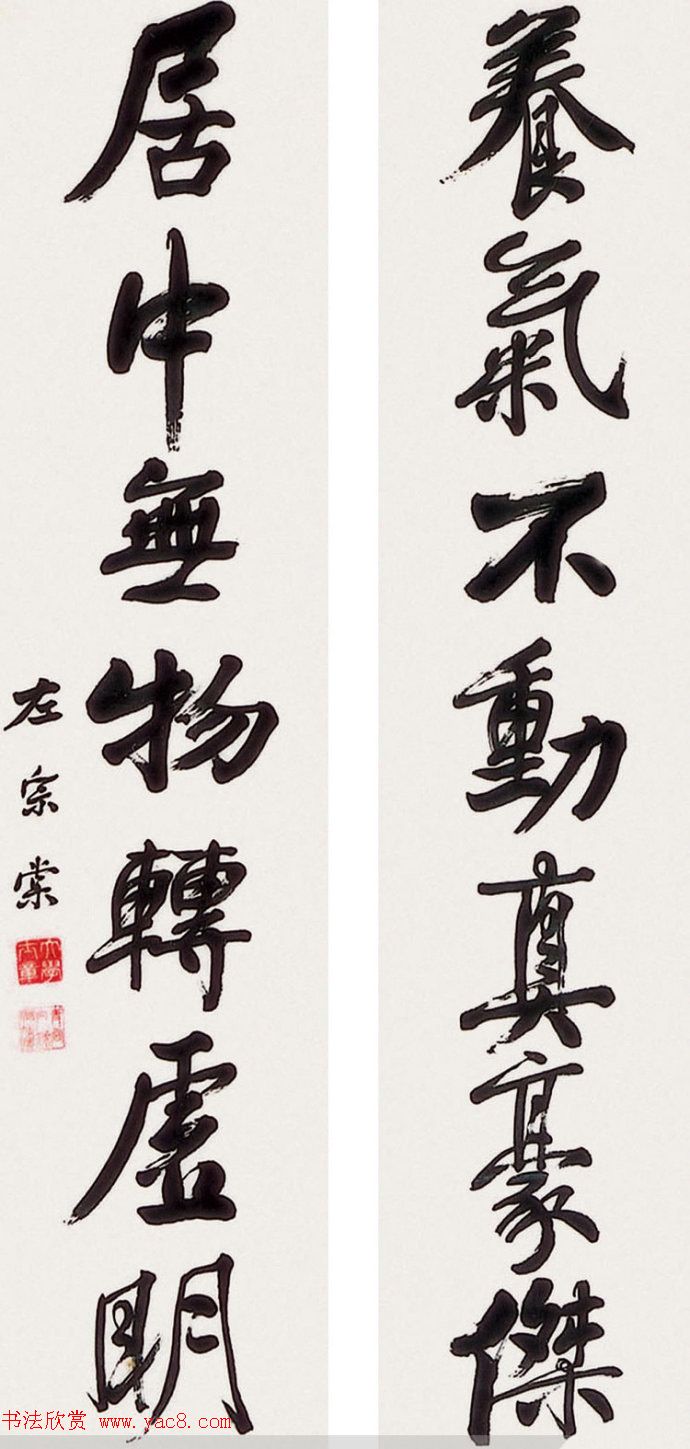 養氣不動真豪傑
居中無物轉虛明
左宗棠
大學士章
书法欣赏 www.yac8.com